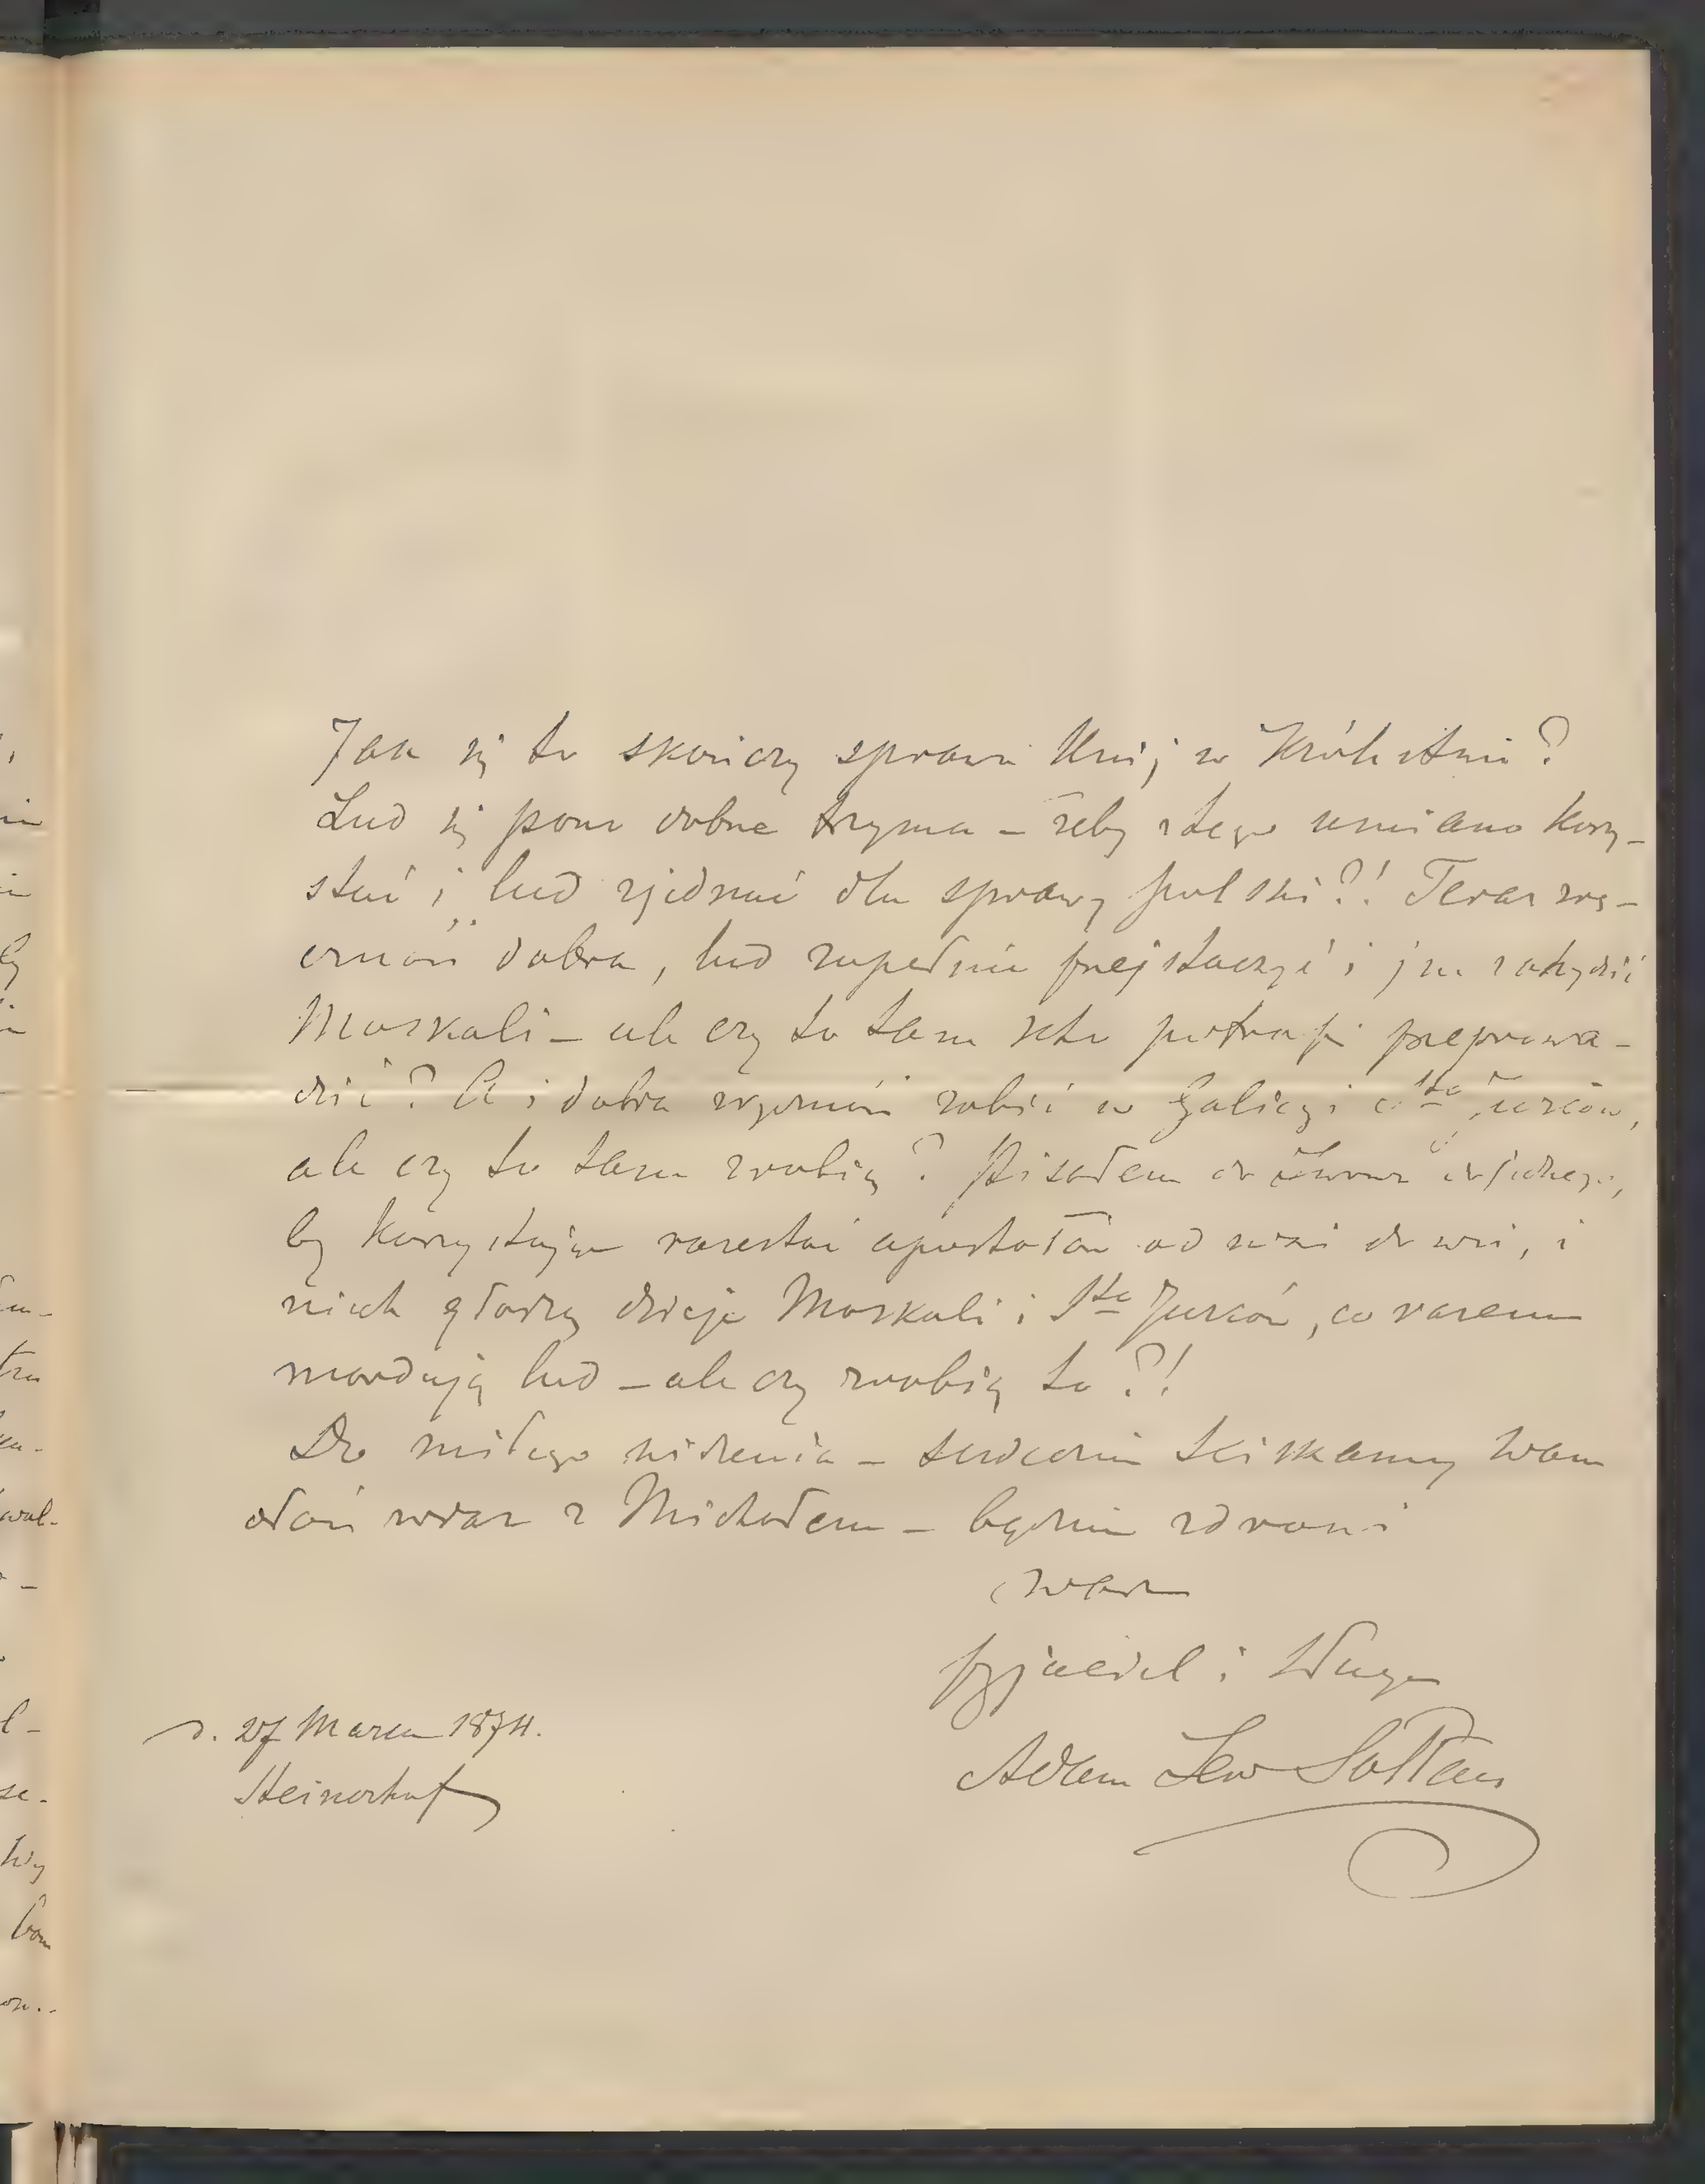 Jak się to skończy sprawa Unij w Królestwie?
Lud się poru dobrze trzyma – żeby z tego umiano korzy-
stać i lud zjednać dla sprawy polski?! Teraz
dobra, lud zupełnie przejstaczyć i jm zohydzić
Moskali – ale czy to tam kto potrafi przeprowa-
dzić? A i dobra robić w Galicyi Sto Jurców,
ale czy to tam zrobią? Pisałem do
by korzystając rozesłać apostołów od wsi do wsi, i
niech głoszą dzieje Moskali i Sto Jurców, co razem
mordują lud – ale czy zrobią to?!
Do miłego widzenia – serdecznie ściskamy Wam
dłoń wraz z Michałem – bądźcie zdrowi
Wasz
przyjaciel i sługa
Adam Lew Sołtan
d. 27 Marca 1874.
Steinerhof